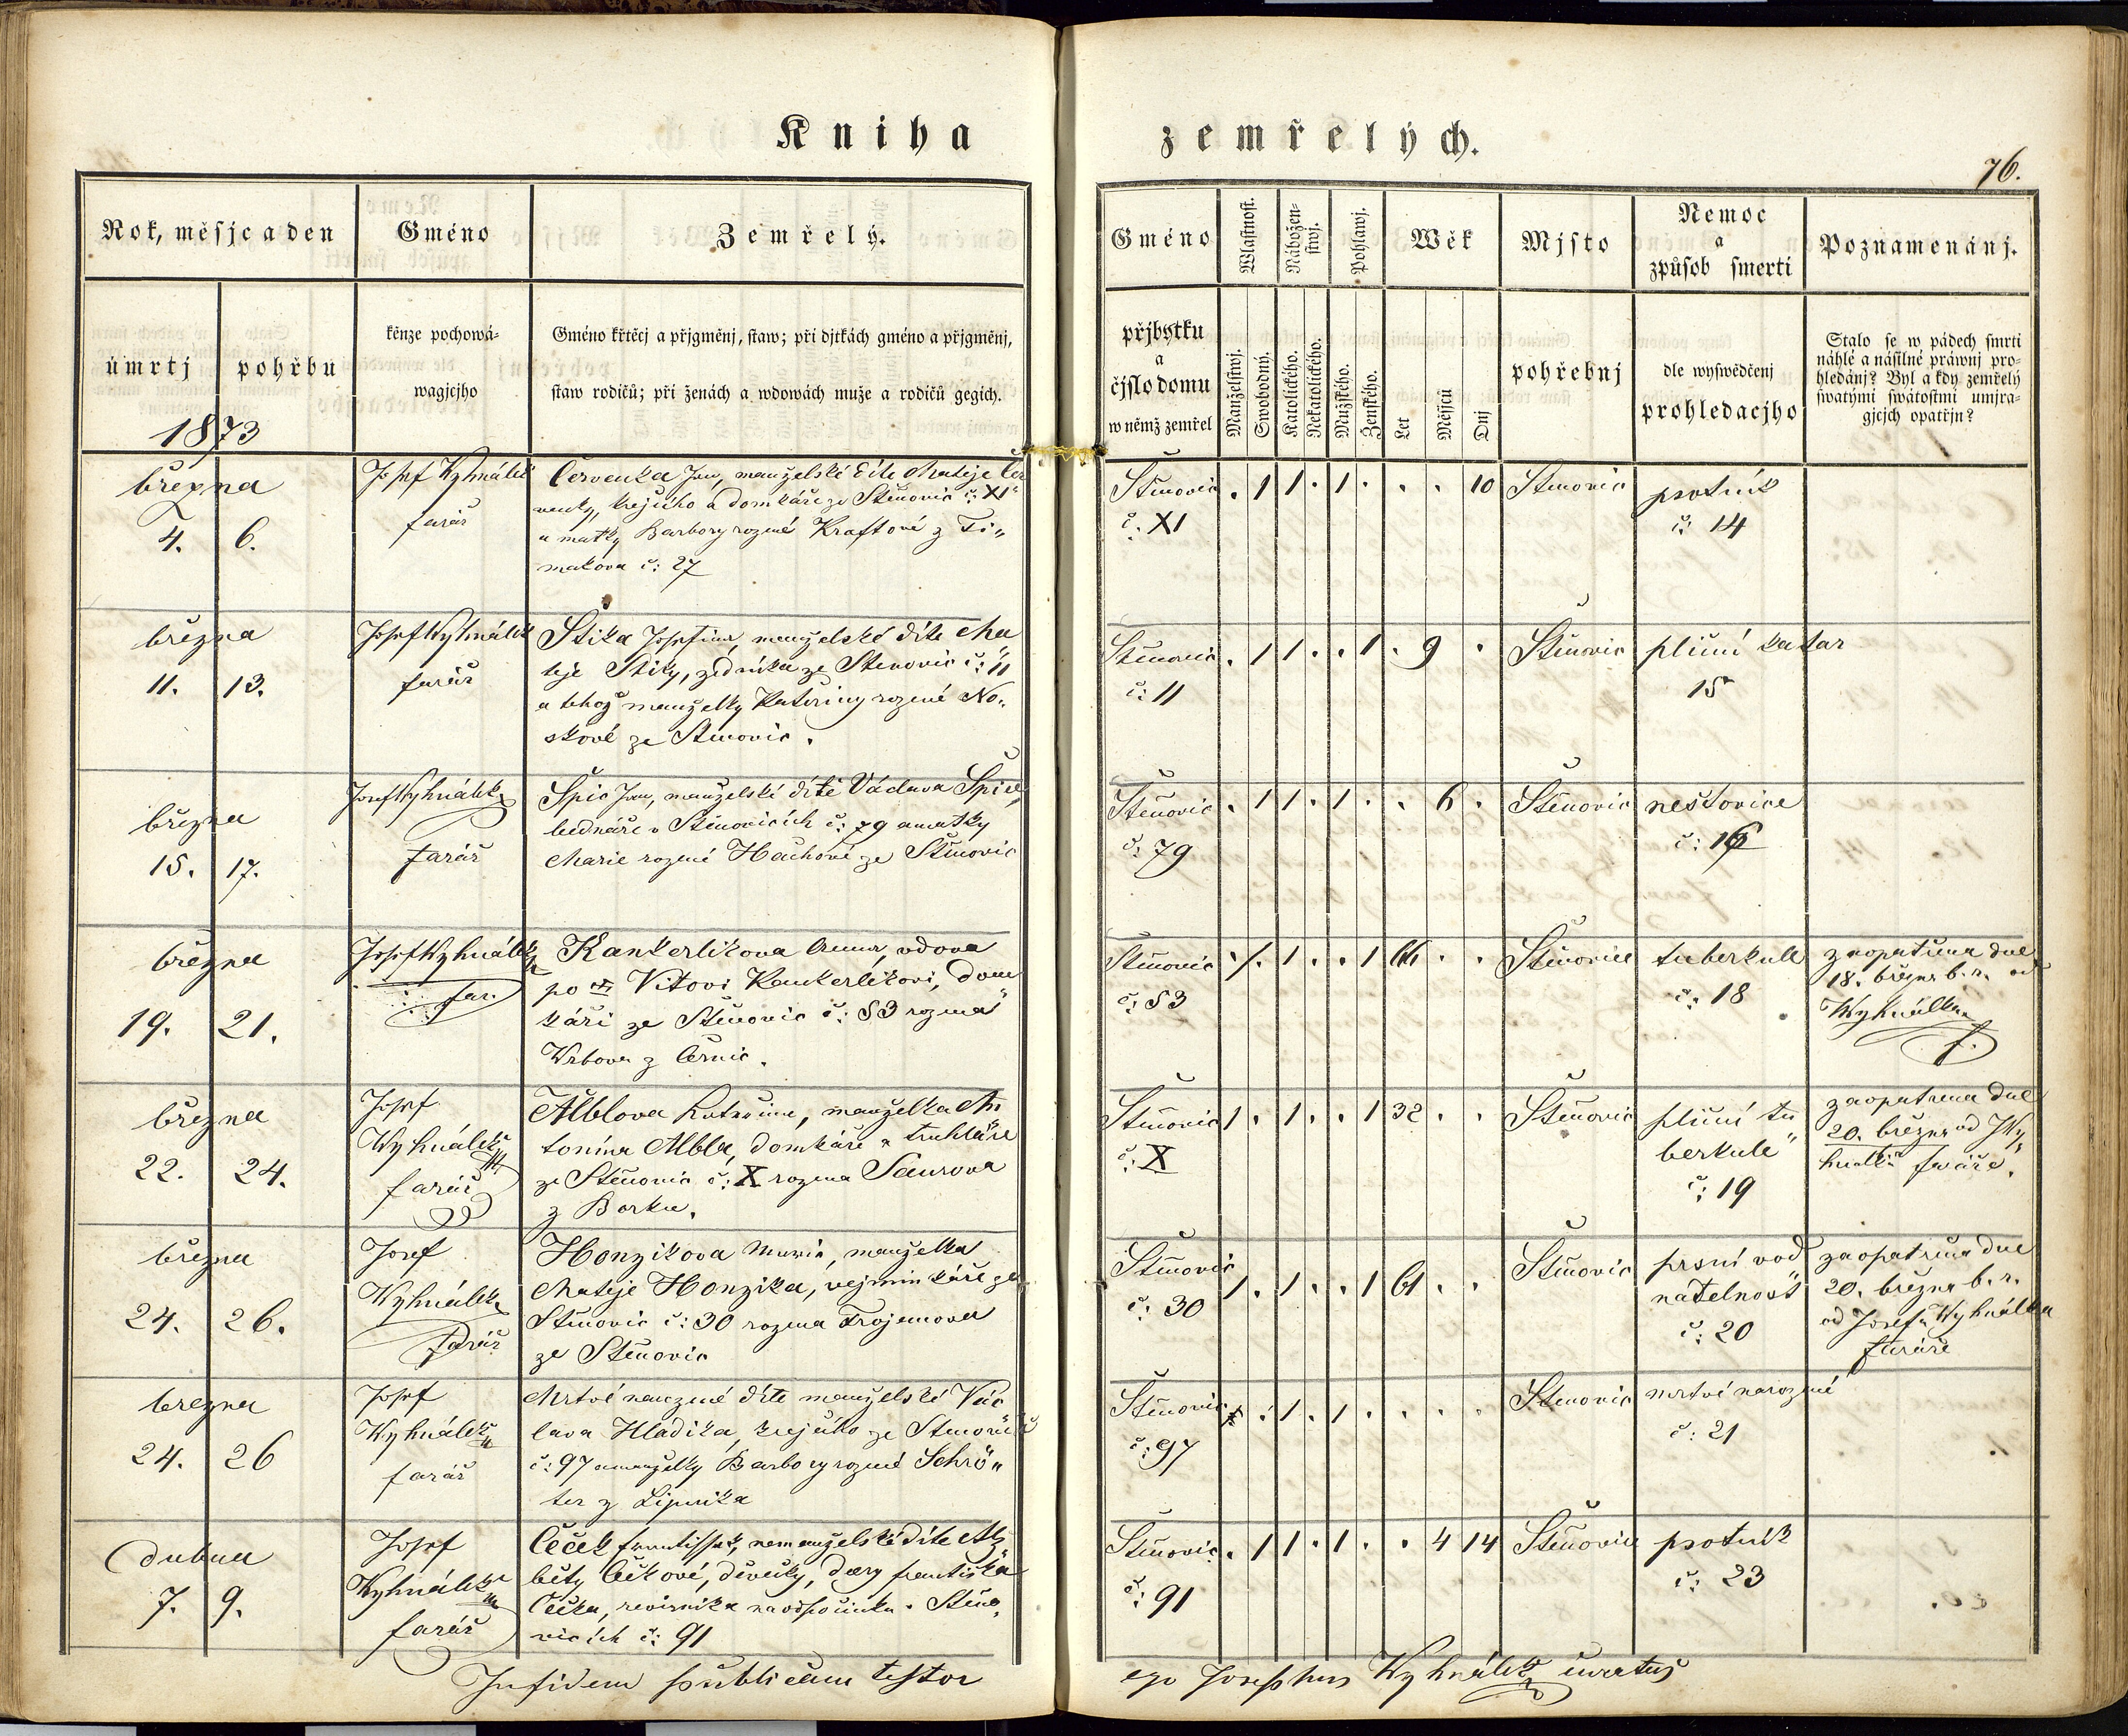 Kniha zemřelých.
76.
Rok, měsjc a den
Gméno
Zemřelý.
Gméno
Wlastnost.
Nábožen-
stwj.
Pohlawj.
Wěk
Mjsto
Nemoc
a
způsob smerti
Poznamenánj.
úmrtj
pohřbu
1873
kněze pochowá-
wagjcjho
Gméno křtěcj a přjgměnj, staw; při djtkách gméno a přjgměnj,
staw rodičů; při ženách a wdowách muže a rodičů gegich.
přjbytku
a
čjslo domu
w němž zemřel
Manželstwj.
Swobodný.
Katolického.
Nekatolického.
Mužského.
Ženského.
Let
Měsjců
Dnj
pohřebnj
dle wyswědčenj
prohledacjho
Stalo se w pádech smrti
náhlé a násilné práwnj pro-
hledánj? Byl a kdy zemřelý
swatými swátostmi umjra-
gjcjch opatřjn?
března
4. 6.
Josef Wyhnálek
farář
Červenka Jan, manželské dítě Mateje Čer
venky, krejčího a domkáře ze Štěnovic č: XI
a matky Barbory rozené Kraftové z Ti„
makova č: 27
Štěnovic
č: XI
. 1 1 . 1 . . . 10
Štěnovic
psotník
č: 14
března
11. 13.
Josef Wyhnálek
farář
Štika Josefina, manželské dítě Ma
těje Štiky, zedníka ze Štěnovic č: 11
a téhož manželky Kateřiny rozené No„
skové ze Štěnovic.
Štěnovic
č: 11
. 1 1 . . 1 . 9 .
Štěnovic
plicní katar
15
března
15. 17.
Josef Wyhnálek
farář
Špic Jan, manželské dítě Václava Špice,
bednáře v Štěnovicích č: 79 a matky
Marie rozené Hachové ze Štěnovic
Štěnovic
č: 79
. 1 1 . 1 . . 6 .
Štěnovic
neštovice
č: 16
března
19. 21.
Josef Wyhnálek
far.
Kankerlikova Anna, vdova
po Vítovi Kankerlikovi, dom
káři ze Štěnovic č: 83 rozená
Wrbova z Černic.
Štěnovic
č: 83
1 . . 1 66 . .
Štěnovice
tuberkule
č. 18
zaopatřena dne
18. března b. r. od
Wyhnálka
f.
března
22. 24.
Josef
Wyhnálek
farář
Alblova Kateřina, manželka An
tonína Albla, domkáře a truhláře
ze Štěnovic č: X rozena Saurova
z Borku.
Štěnovic
č: X
1 . 1 . . 1 32 . .
Štěnovic
plicní tu
berkule
č: 19
zaopatřena dne
20. března od Wy
hnálka faráře.
března
24. 26.
Josef
Wyhnálek
farář
Honzikova Marie, manželka
Mateje Honzika, vejminkáře ze
Štěnovic č: 30 rozena Trojanova
ze Štěnovic
Štěnovic
č: 30
1 . 1 . . 1 61 . .
Štěnovic
prsní vod
natelnost
č: 20
zaopatřena dne
20. března b. r.
od Josefa Wyhnálka
faráře
března
24. 26
Josef
Wyhnálek
farář
Mrtvě narozené dítě manželské Vác
lava Hladíka, krejčího ze Štěnovic
č: 97 a manželky Barbory rozené Schrö„
ter z Lipnika
Štěnovic
č: 97
. 1 . 1 . . . .
Štěnovic
mrtvě narozené
č: 21
dubna
7. 9.
Josef
Wyhnálek
farář
Čeček František, nemanželské dítě Alž
běty Čečkové, děvečky, dcery Františka
Čečka, revírníka na odpočinku v Štěno„
vicích č: 91
Štěnovic
č: 91
. 1 1 . 1 . . 4 14
Štěnovic
psotník
č: 23
In fidem publicam testor
ego Josephus Wyhnálek curatus